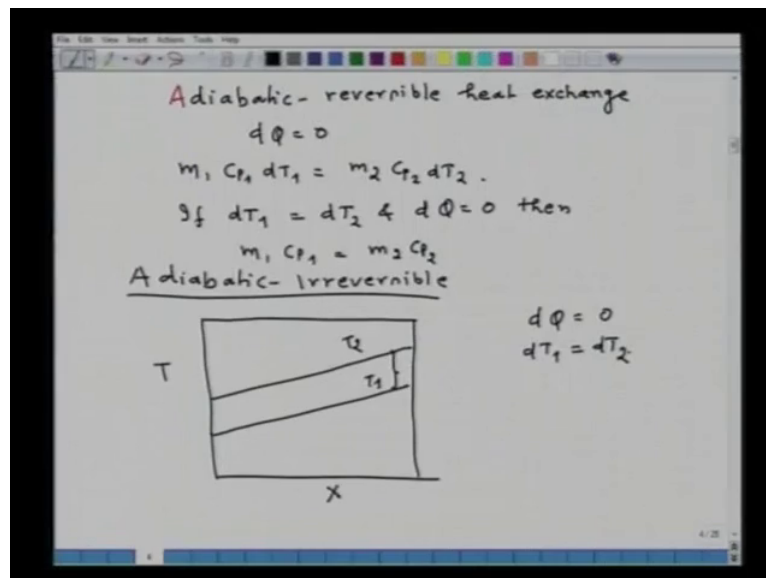 File Edit View Insert Actions Tools Help
Adiabatic- reversible heat exchange
dQ = 0
m₁ Cp₁ dT₁ = m₂ Cp₂ dT₂.
If dT₁ = dT₂ & dQ = 0 then
m₁ Cp₁ = m₂ Cp₂
Adiabatic- Irreversible
dQ = 0
dT₁ = dT₂
T₂
T
T₁
X